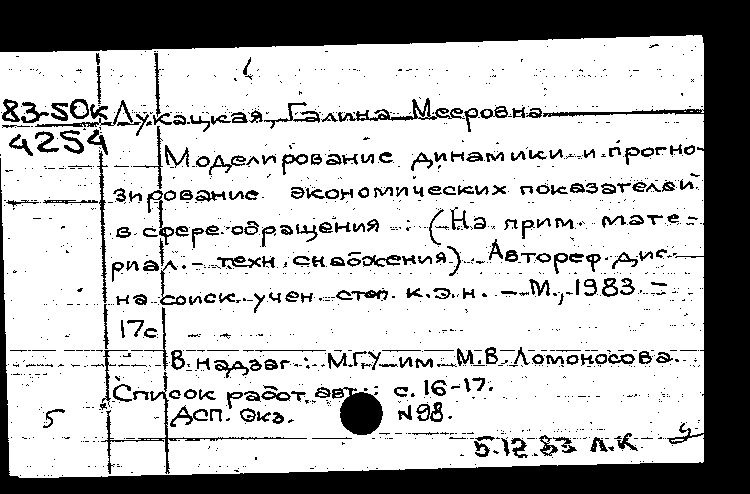 83-50к Лукацкая, Галина Мееровна
4254
Моделирование динамики и прогно-
зирование экономических показателей
в сфере обращения : (На прим. мате-
риал.- техн. снабжения) Автореф. дис.
на соиск. учен. степ. к.э.н. - М., 1983 -
17с
В надзаг : МГУ им. М.В. Ломоносова.
Список работ. авт.: с. 16-17.
5 Дсп. Экз. N98.
5.12.83 Л.К